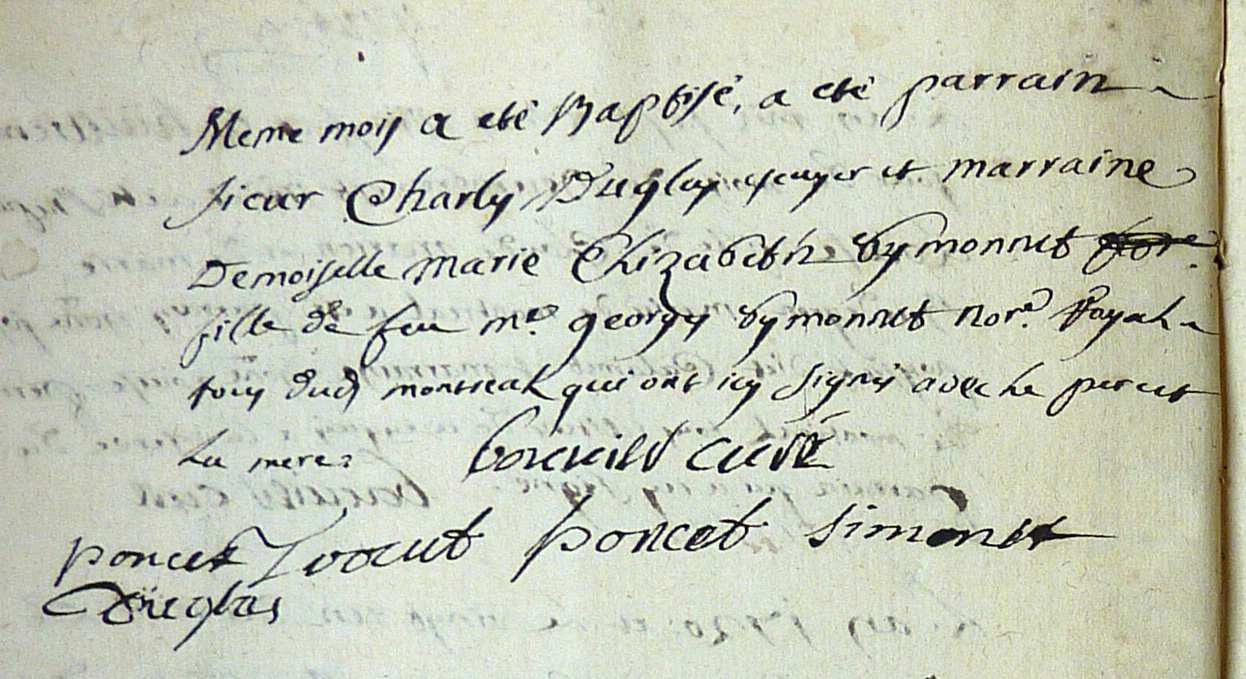 Meme mois a eté Baptisé, a eté parrain
sieur Charles Duglas escuyer et marraine
Demoiselle marie Elizabeth Symonnet
fille de feu me. georges Symonnet nore. Royal
tous dud montreal qui ont icy signes avec le pere et
La mere
curé
poncet poncet simonet
Duglas